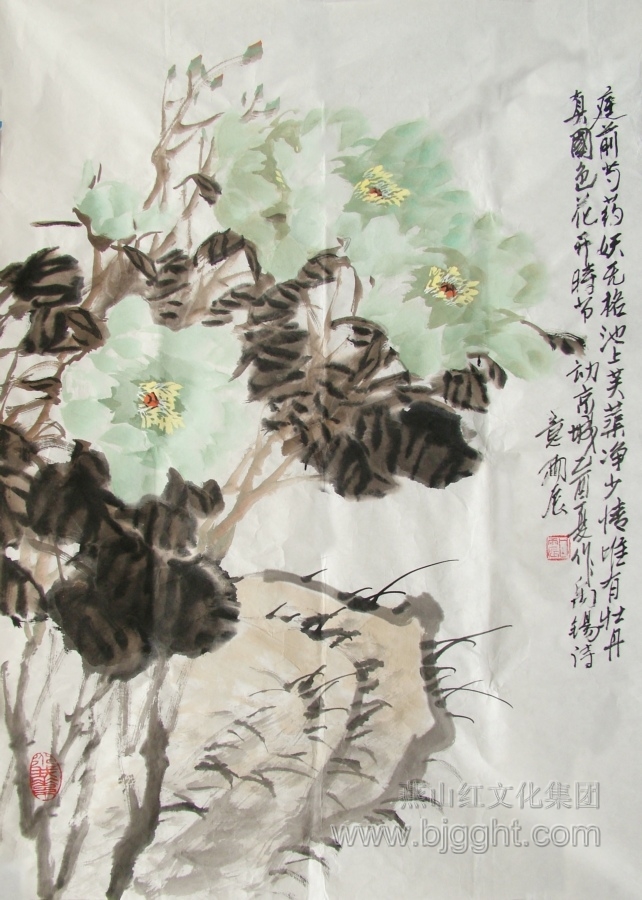 庭前芍药妖无格池上芙蕖净少情唯有牡丹
真國色花开時节动京城乙酉夏作禹锡诗
燕山红文化集团
www.bjgght.com